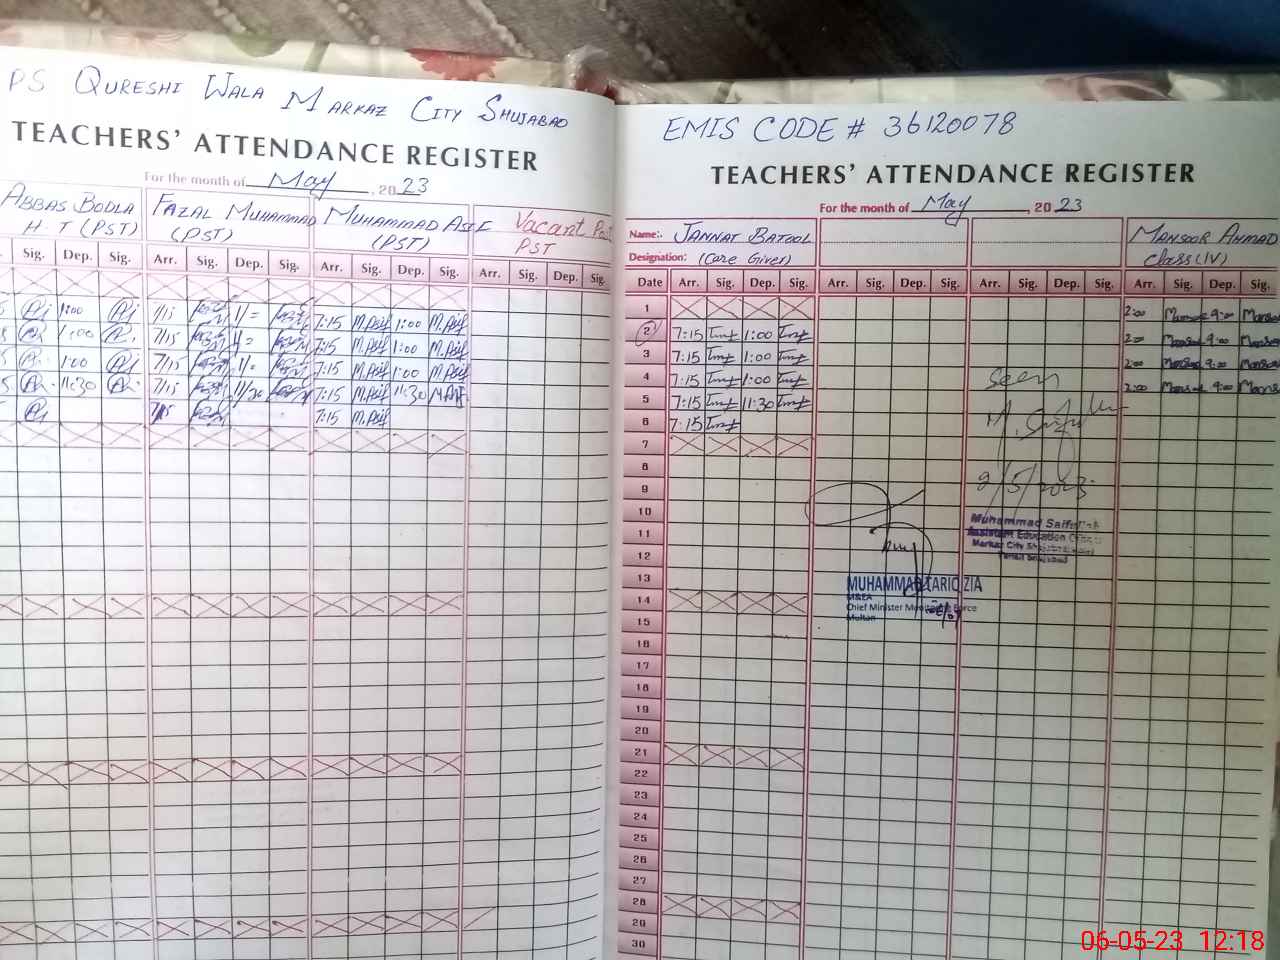 PS QURESHI WALA MARKAZ CITY SHUJABAD
TEACHERS' ATTENDANCE REGISTER
For the month of May, 2023
ABBAS BODLA FAZAL MUHAMMAD MUHAMMAD ASIF Vacant Post
H.T (PST) (PST) (PST) PST
Sig. Dep. Sig. Arr. Sig. Dep. Sig. Arr. Sig. Dep. Sig. Arr. Sig. Dep. Sig.
1:00 7/15 7:15 M.Asif 1:00 M.Asif
1:00 7/15 7:15 M.Asif 1:00 M.Asif
1:00 7/15 7:15 M.Asif 1:00 M.Asif
11:30 7/15 11/30 7:15 M.Asif 11:30 M.Asif
7/15 7:15 M.Asif
EMIS CODE # 36120078
TEACHERS' ATTENDANCE REGISTER
For the month of May, 2023
Name:. JANNAT BATOOL MANSOOR AHMAD
Designation: (Care Giver) Class (IV)
Date Arr. Sig. Dep. Sig. Arr. Sig. Dep. Sig. Arr. Sig. Dep. Sig. Arr. Sig. Dep. Sig.
1 2:00 9:00
2 7:15 1:00 2:00 9:00
3 7:15 1:00 2:00 9:00
4 7:15 1:00 Seen 2:00 9:00
5 7:15 11:30
6 7:15
7
8
9 9/5/2023
10
11 Muhammad Saifullah
Assistant Education Officer
12 Markaz City
13 MUHAMMAD TARIQ ZIA
14 M&EA
Chief Minister Monitoring Force
15 Multan
16
17
18
19
20
21
22
23
24
25
26
27
28
29
30
06-05-23 12:18